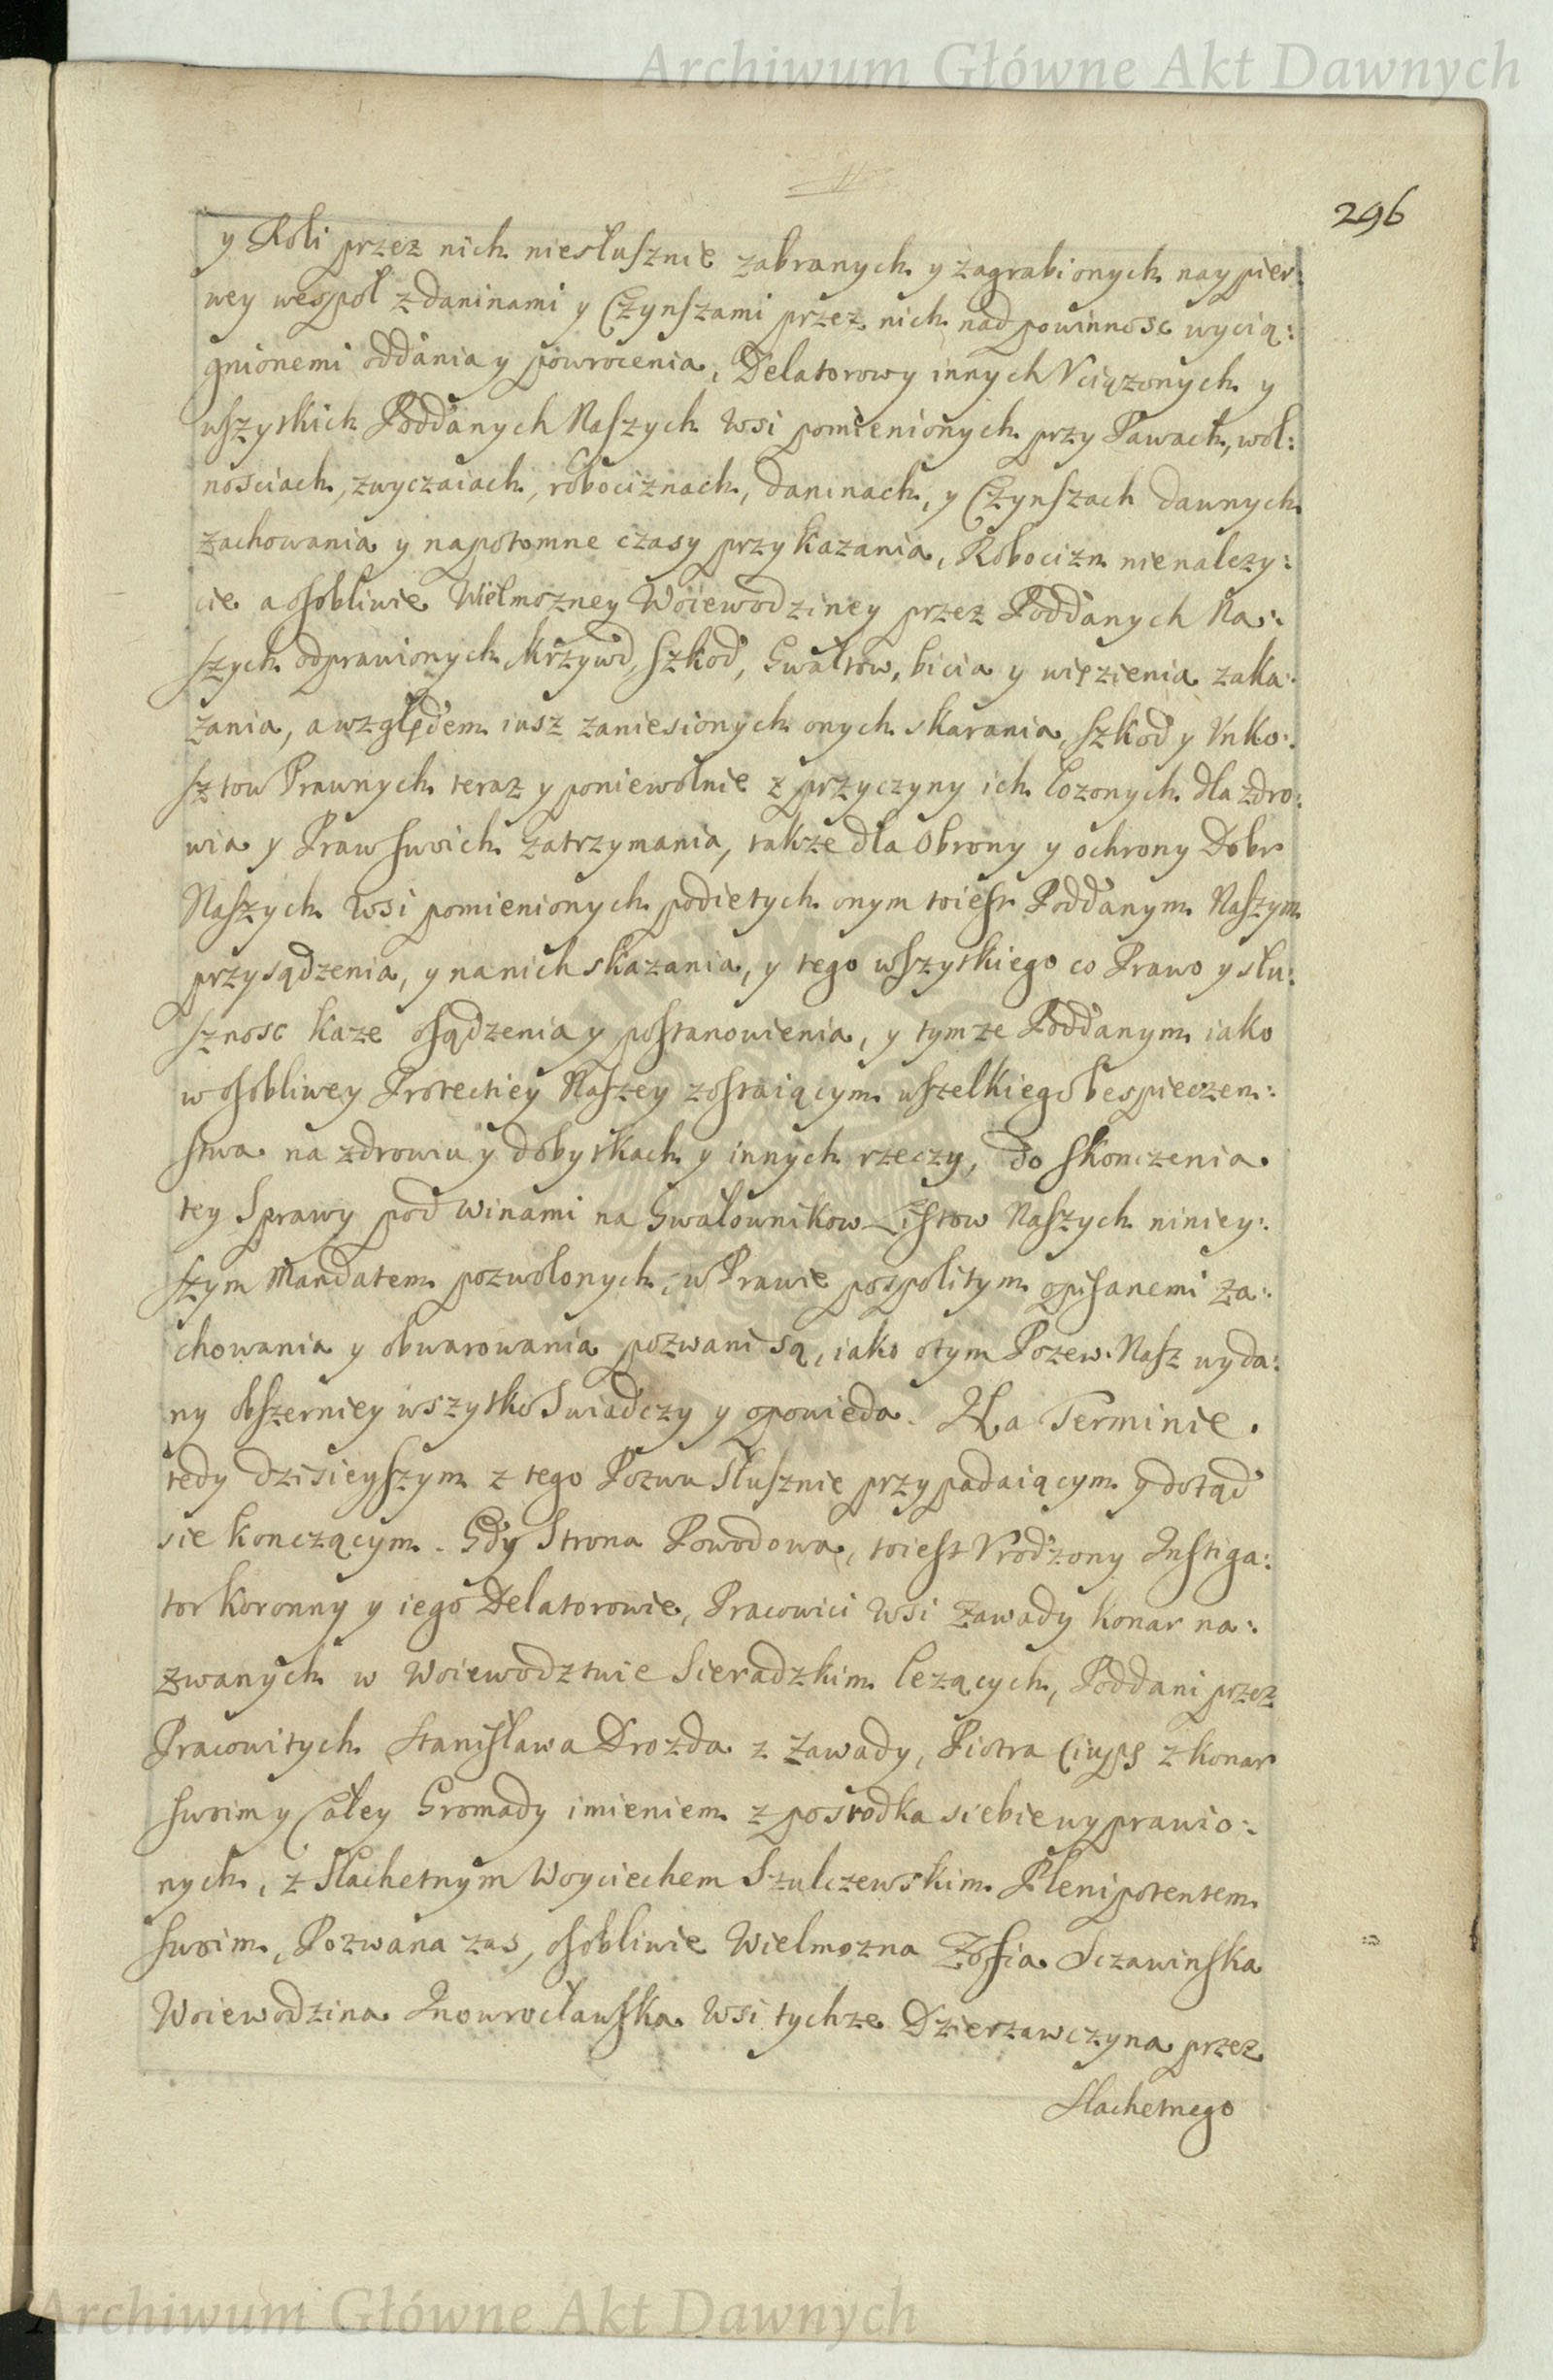 Archiwum Główne Akt Dawnych
296
y Roli przez nich niesłusznie zabranych y zagrabionych naypier:
wey wespoł z daninami y Czynszami przez nich nad powinnosc wycią:
gnionemi oddania y powrocenia, Delatorowy innych Vciązonych y
wszytkich Poddanych Naszych Wsi pomienionych przy Pawach, wol:
nosciach, zwyczaiach, robociznach, daninach, y Czynszach dawnych
zachowania y napotomne czasy przykazania, Robocizn nienalezy:
cie a osobliwie Wielmozney Woiewodziney przez Poddanych Na:
szych odprawionych Krzywd, szkod, Gwałtow, bicia y więzienia zaka:
zania, a względem iusz zaniesionych onych skarania, szkod y Vnko:
sztow Prawnych teraz y poniewolnie z przyczyny ich łozonych dla zdro:
wia y Praw swoich zatrzymania, takze dla Obrony y ochrony Dobr
Naszych Wsi pomienionych podietych onym toiest Poddanym Naszym
przysądzenia, y na nich skazania, y tego wszytkiego co Prawo y słu:
sznosc kaze osądzenia y postanowienia, y tymze Poddanym iako
w osobliwey Protectiey Naszey zostaiącym wszelkiego bespieczen:
stwa na zdrowiu y dobytkach y innych rzeczy, do skonczenia
tey Sprawy pod winami na Gwałownikow Listow Naszych niniey:
szym Mandatem pozwolonych, w Prawie pospolitym opisanemi za:
chowania y obwarowania pozwani są, iako o tym Pozew Nasz wyda:
ny obszerniey wszytko Swiadczy y opowieda. Na Terminie
tedy dzisieyszym z tego Pozwu Słusznie przypadaiącym y dotąd
sie konczącym. Gdy Strona Powodowa, toiest Vrodzony Instiga:
tor Koronny y iego Delatorowie, Pracowici Wsi Zawady Konar na:
zwanych w Woiewodztwie Sieradzkim lezących, Poddani przez
Pracowitych Stanisława Drozda z Zawady, Piotra z Konar
swoim y Całey Gromady imieniem z posrodka siebie wyprawio:
nych, z Slachetnym Woyciechem Szulczewskim Plenipotentem
swoim, Pozwana zas, osobliwie Wielmozna Zofia Sczawinska
Woiewodzina Inowrocławska Wsi tychze Dzierzawczyna przez
Slachetnego
Archiwum Główne Akt Dawnych